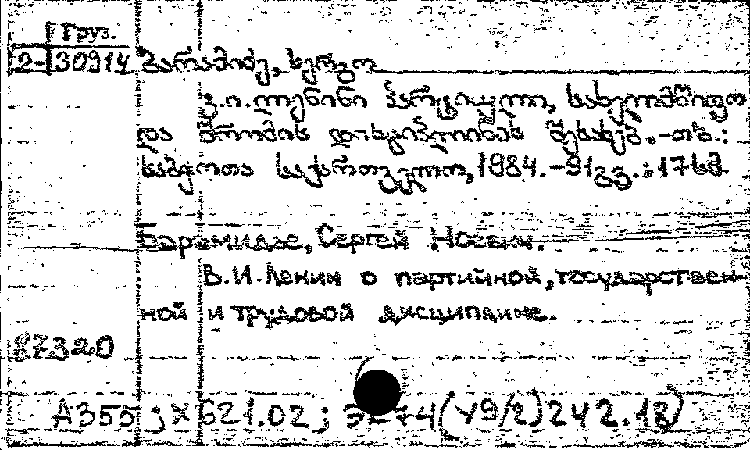 Груз.
2-30914 ბარამიძე, სერგო
ვ.ი.ლენინი პარტიული, სახელმწიფო
და შრომის დისციპლინის შესახებ.-თბ.:
საბჭოთა საქართველო, 1984.-91გვ.:17სმ
Барамидзе, Сергей Иосеич.
В.И.Ленин о партийной, государствен-
ной и трудовой дисциплине.
87320
А355; Х621.02; (У9/2)242.18)